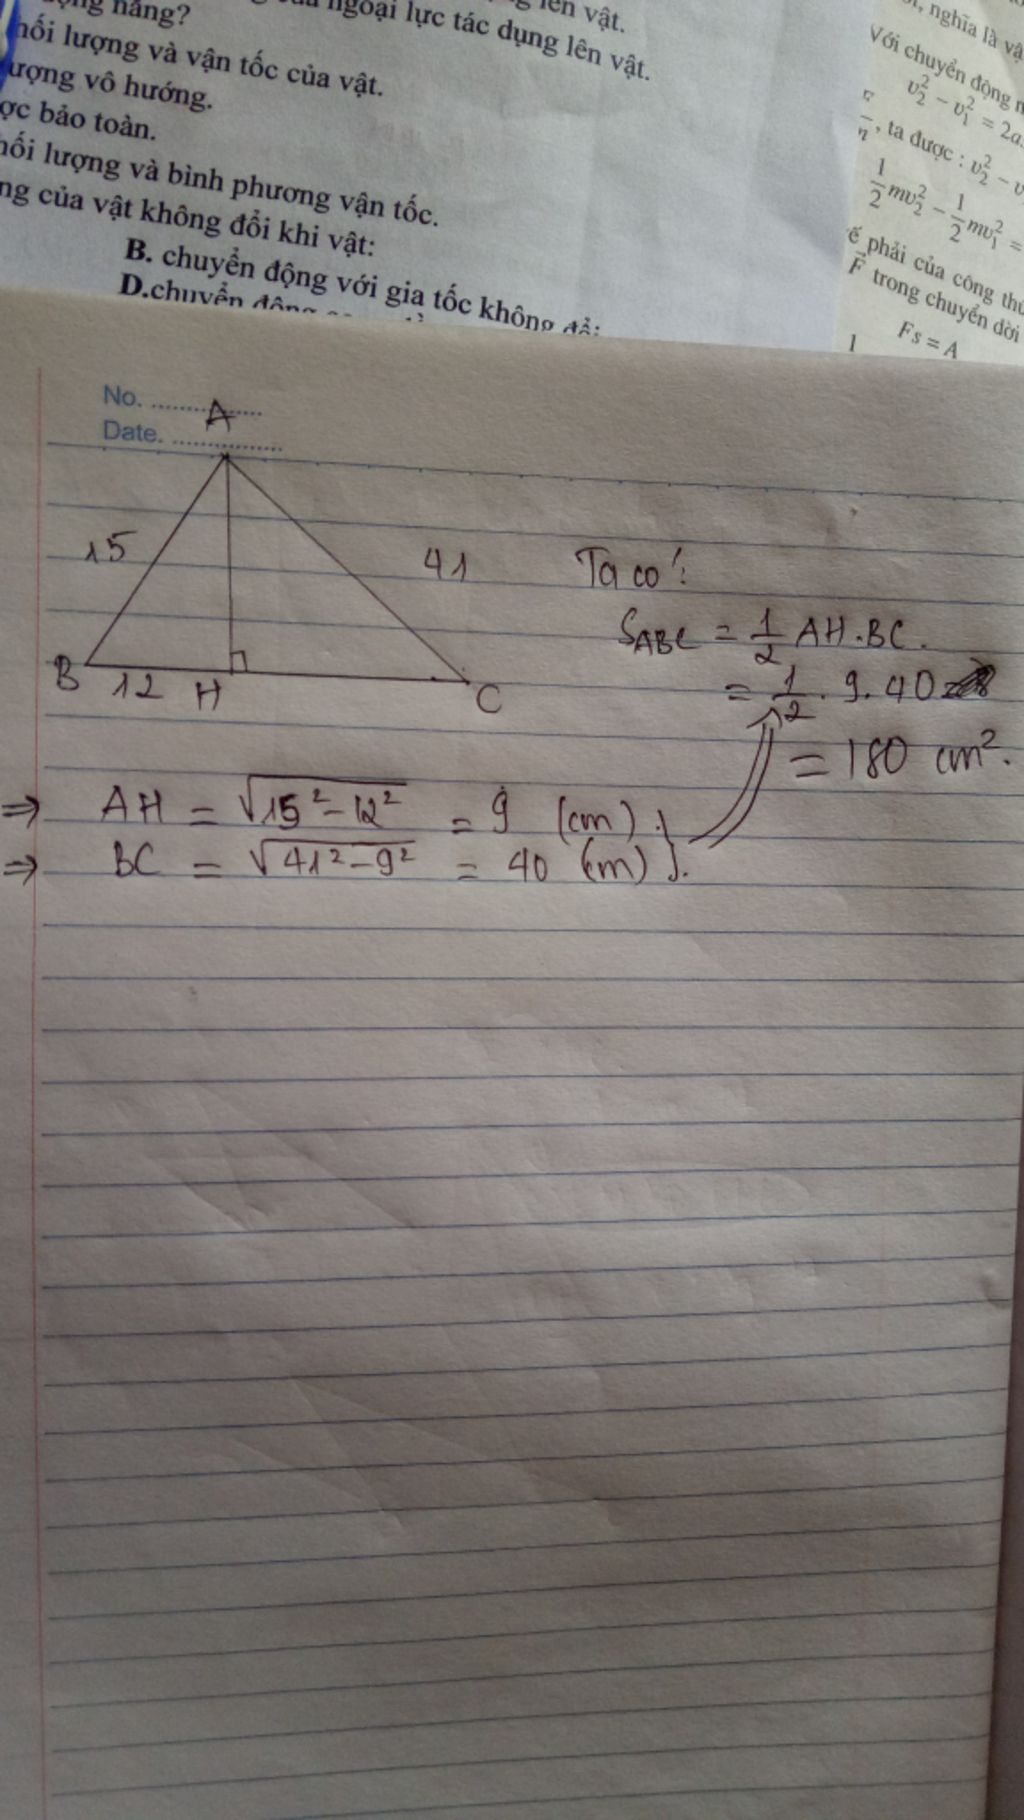 ngoại lực tác dụng lên vật.
lên vật.
năng?
hối lượng và vận tốc của vật.
ượng vô hướng.
ợc bảo toàn.
hối lượng và bình phương vận tốc.
ng của vật không đổi khi vật:
B. chuyển động với gia tốc không đổi
D.chuyển động
nghĩa là vậ
Với chuyển động n
v₂² - v₁² = 2a.
, ta được : v₂² - v
1/2 mv₂² - 1/2 mv₁² =
ế phải của công thứ
F trong chuyển dời
Fs = A
1
No.
Date.
A
15
41
B 12 H
C
Ta có:
SABC = 1/2 AH.BC.
= 1/2 . 9. 40
= 180 cm².
⇒ AH = √15² - 12² = 9 (cm)
⇒ BC = √41² - 9² = 40 (cm) }.